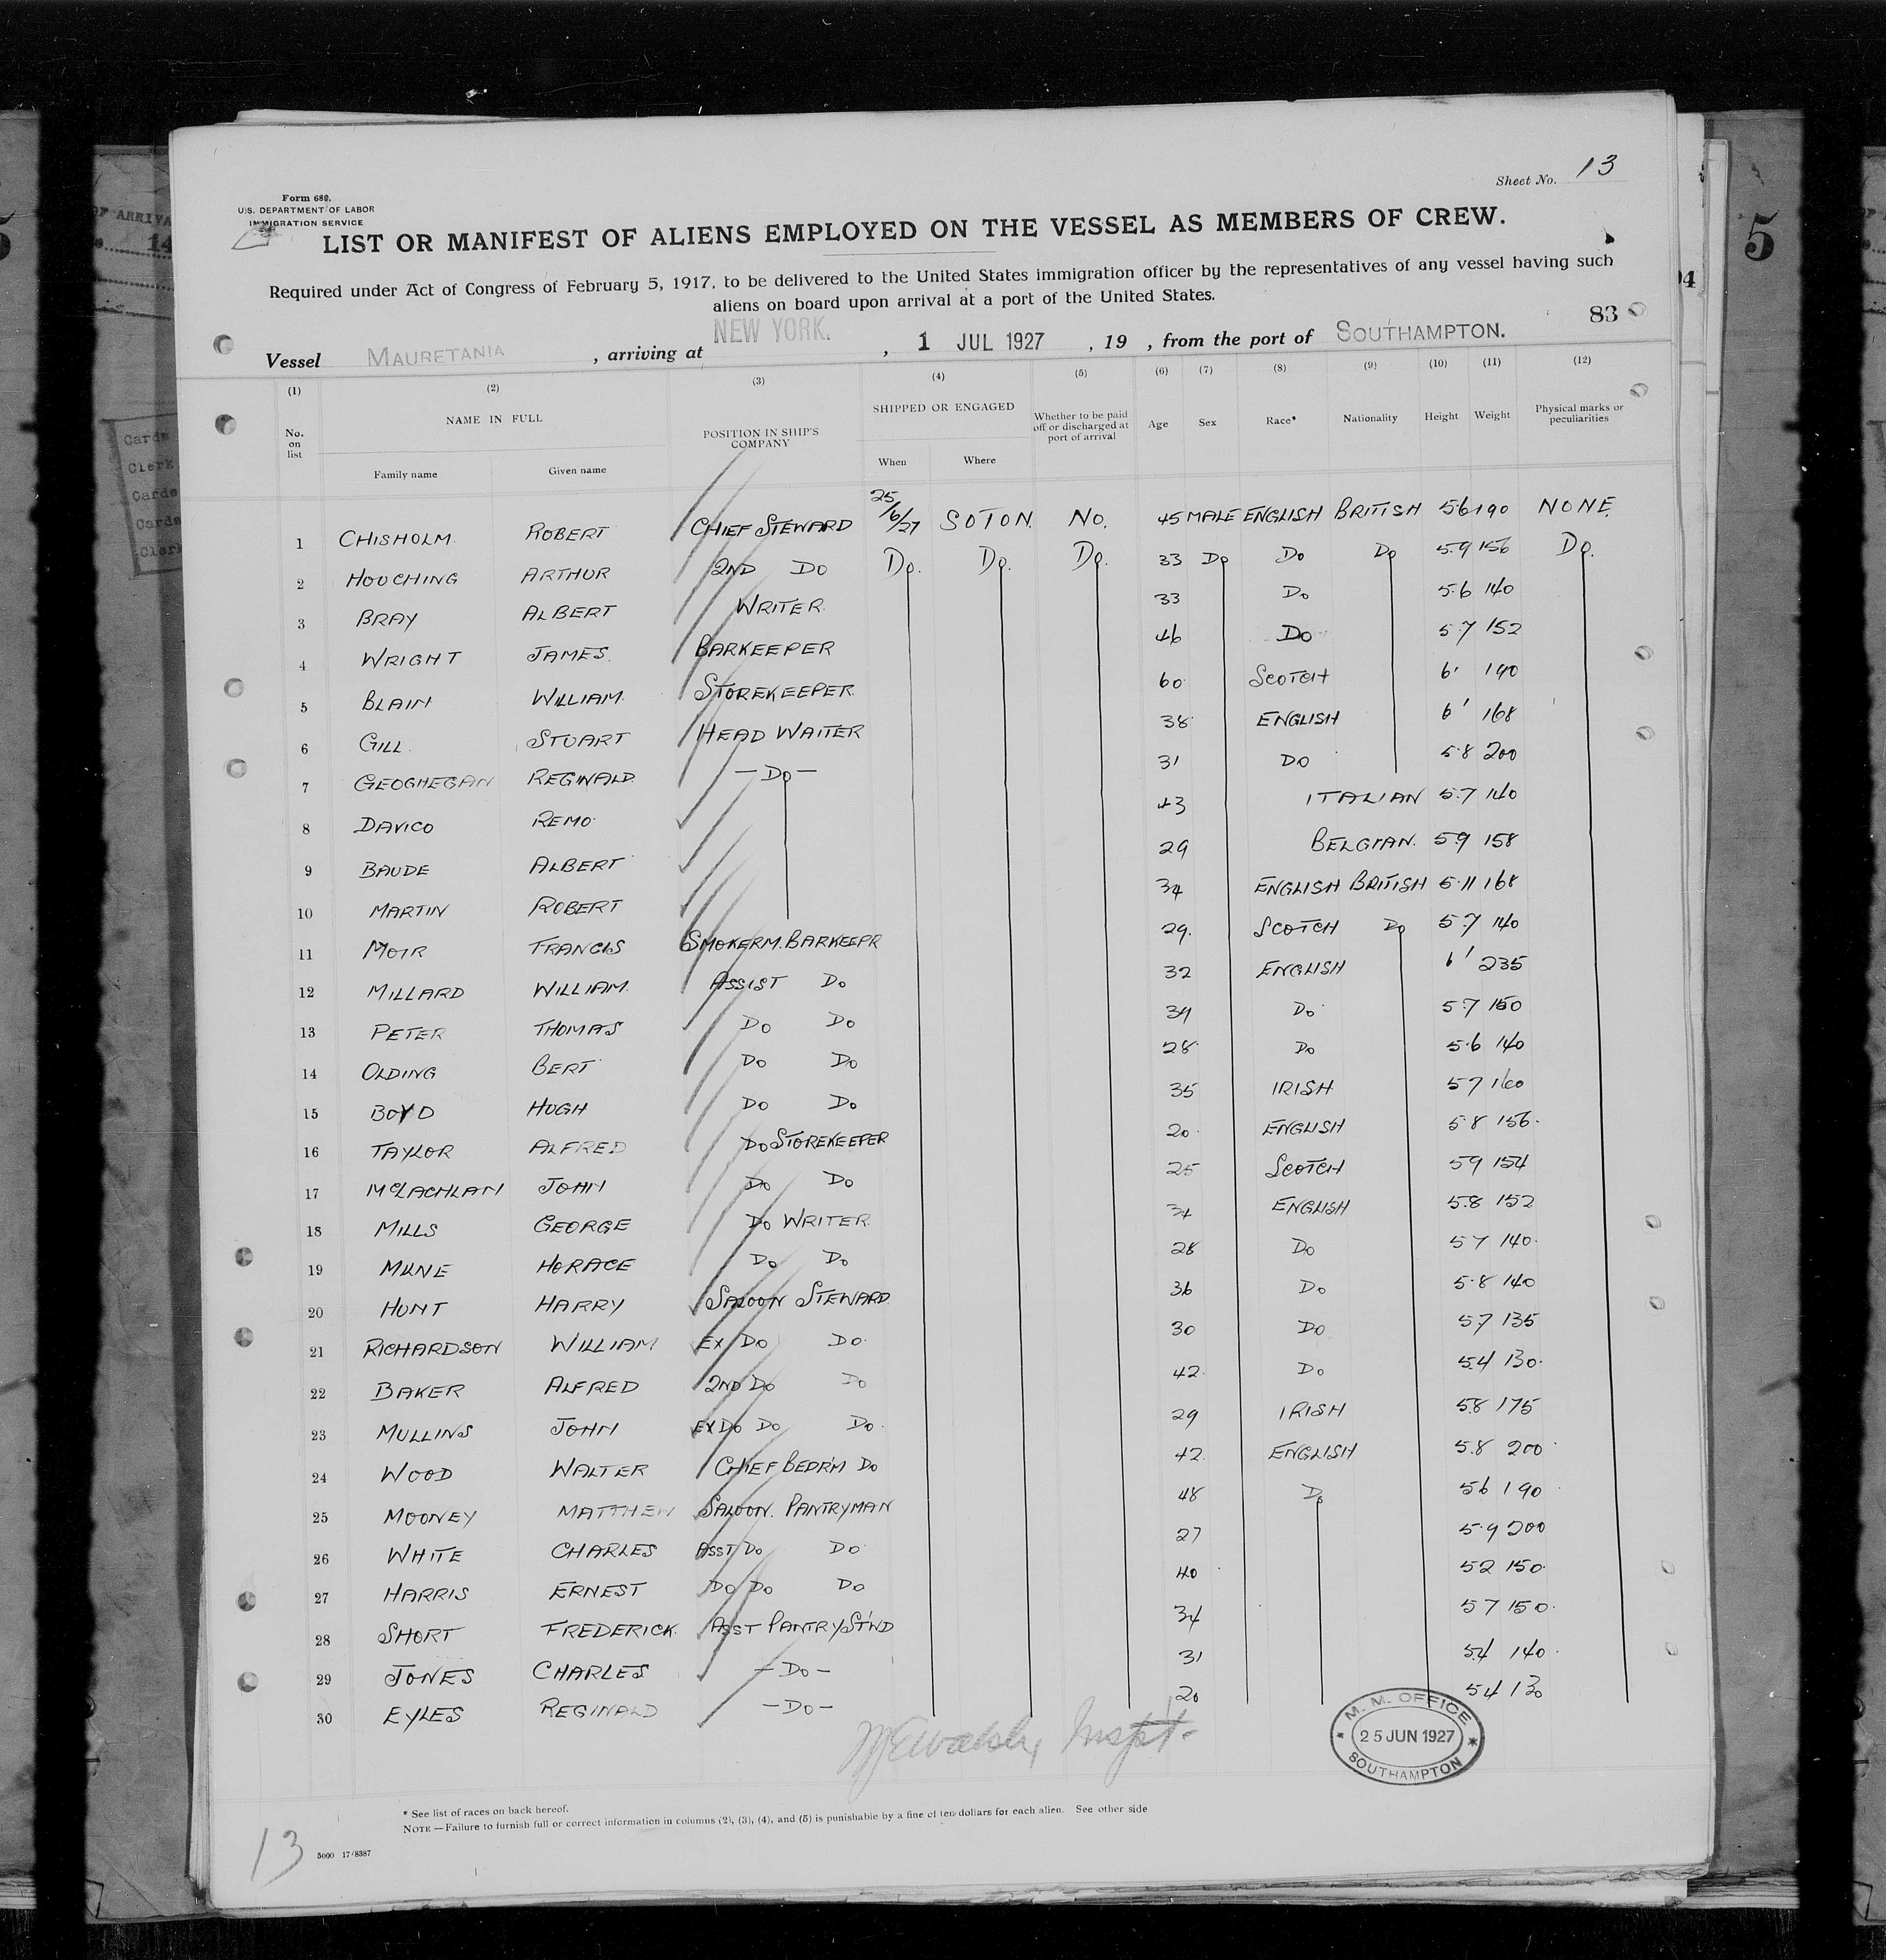 Sheet No. 13
Form 680.
U.S. DEPARTMENT OF LABOR
IMMIGRATION SERVICE
LIST OR MANIFEST OF ALIENS EMPLOYED ON THE VESSEL AS MEMBERS OF CREW.
Required under Act of Congress of February 5, 1917, to be delivered to the United States immigration officer by the representatives of any vessel having such
aliens on board upon arrival at a port of the United States.
83
Vessel MAURETANIA, arriving at NEW YORK., 1 JUL 1927, 19 , from the port of SOUTHAMPTON.
(1) (2) (3) (4) (5) (6) (7) (8) (9) (10) (11) (12)
No. on list NAME IN FULL POSITION IN SHIP'S COMPANY SHIPPED OR ENGAGED Whether to be paid off or discharged at port of arrival Age Sex Race* Nationality Height Weight Physical marks or peculiarities
Family name Given name When Where
1 CHISHOLM. ROBERT CHIEF STEWARD 25/6/27 SOTON. NO. 45 MALE ENGLISH BRITISH 56 190 NONE.
2 HOUCHING ARTHUR 2ND DO Do. Do. Do. 33 Do Do Do 5.9 156 Do.
3 BRAY ALBERT WRITER. 33 Do 5.6 140
4 WRIGHT JAMES. BARKEEPER 46 Do 5.7 152
5 BLAIN WILLIAM. STOREKEEPER 60 SCOTCH 6' 190
6 GILL. STUART HEAD WAITER 38 ENGLISH 6' 168
7 GEOGHEGAN REGINALD. -Do- 31 DO 5.8 200
8 DAVICO REMO 43 ITALIAN 5.7 140
9 BAUDE ALBERT 29 BELGIAN. 59 158
10 MARTIN ROBERT 34 ENGLISH BRITISH 5.11 168
11 MOIR FRANCIS SMOKERM. BARKEEPR 29. SCOTCH Do 57 140
12 MILLARD WILLIAM. ASSIST Do 32 ENGLISH 6' 235
13 PETER THOMAS Do Do 39 Do 5.7 150
14 OLDING BERT Do Do 28 Do 5.6 140
15 BOYD HUGH Do Do 35 IRISH 57 160
16 TAYLOR ALFRED Do STOREKEEPER 20 ENGLISH 5.8 156.
17 McLACHLAN JOHN Do Do 25 SCOTCH 59 154
18 MILLS GEORGE Do WRITER. 34 ENGLISH 5.8 152
19 MILNE HORACE Do Do 28 Do 57 140.
20 HUNT HARRY SALOON STEWARD. 36 Do 5.8 140
21 RICHARDSON WILLIAM EX DO DO. 30 DO 57 135
22 BAKER ALFRED 2ND DO DO 42. Do 5.4 130.
23 MULLINS JOHN EX DO DO DO. 29 IRISH 5.8 175
24 WOOD WALTER CHIEF BEDR'M DO 42. ENGLISH 5.8 200
25 MOONEY MATTHEW SALOON. PANTRYMAN 48 Do 56 190
26 WHITE CHARLES ASST DO DO 27 5.9 200
27 HARRIS ERNEST DO DO DO 40 52 150.
28 SHORT FREDERICK. ASST PANTRY ST'WD 34 57 150.
29 JONES CHARLES -Do- 31 5.4 140.
30 EYLES REGINALD -Do- 20 54 130
Inspt.
M. M. OFFICE
25 JUN 1927
SOUTHAMPTON
* See list of races on back hereof.
NOTE — Failure to furnish full or correct information in columns (2), (3), (4), and (5) is punishable by a fine of ten dollars for each alien. See other side
13
5000 17/8387